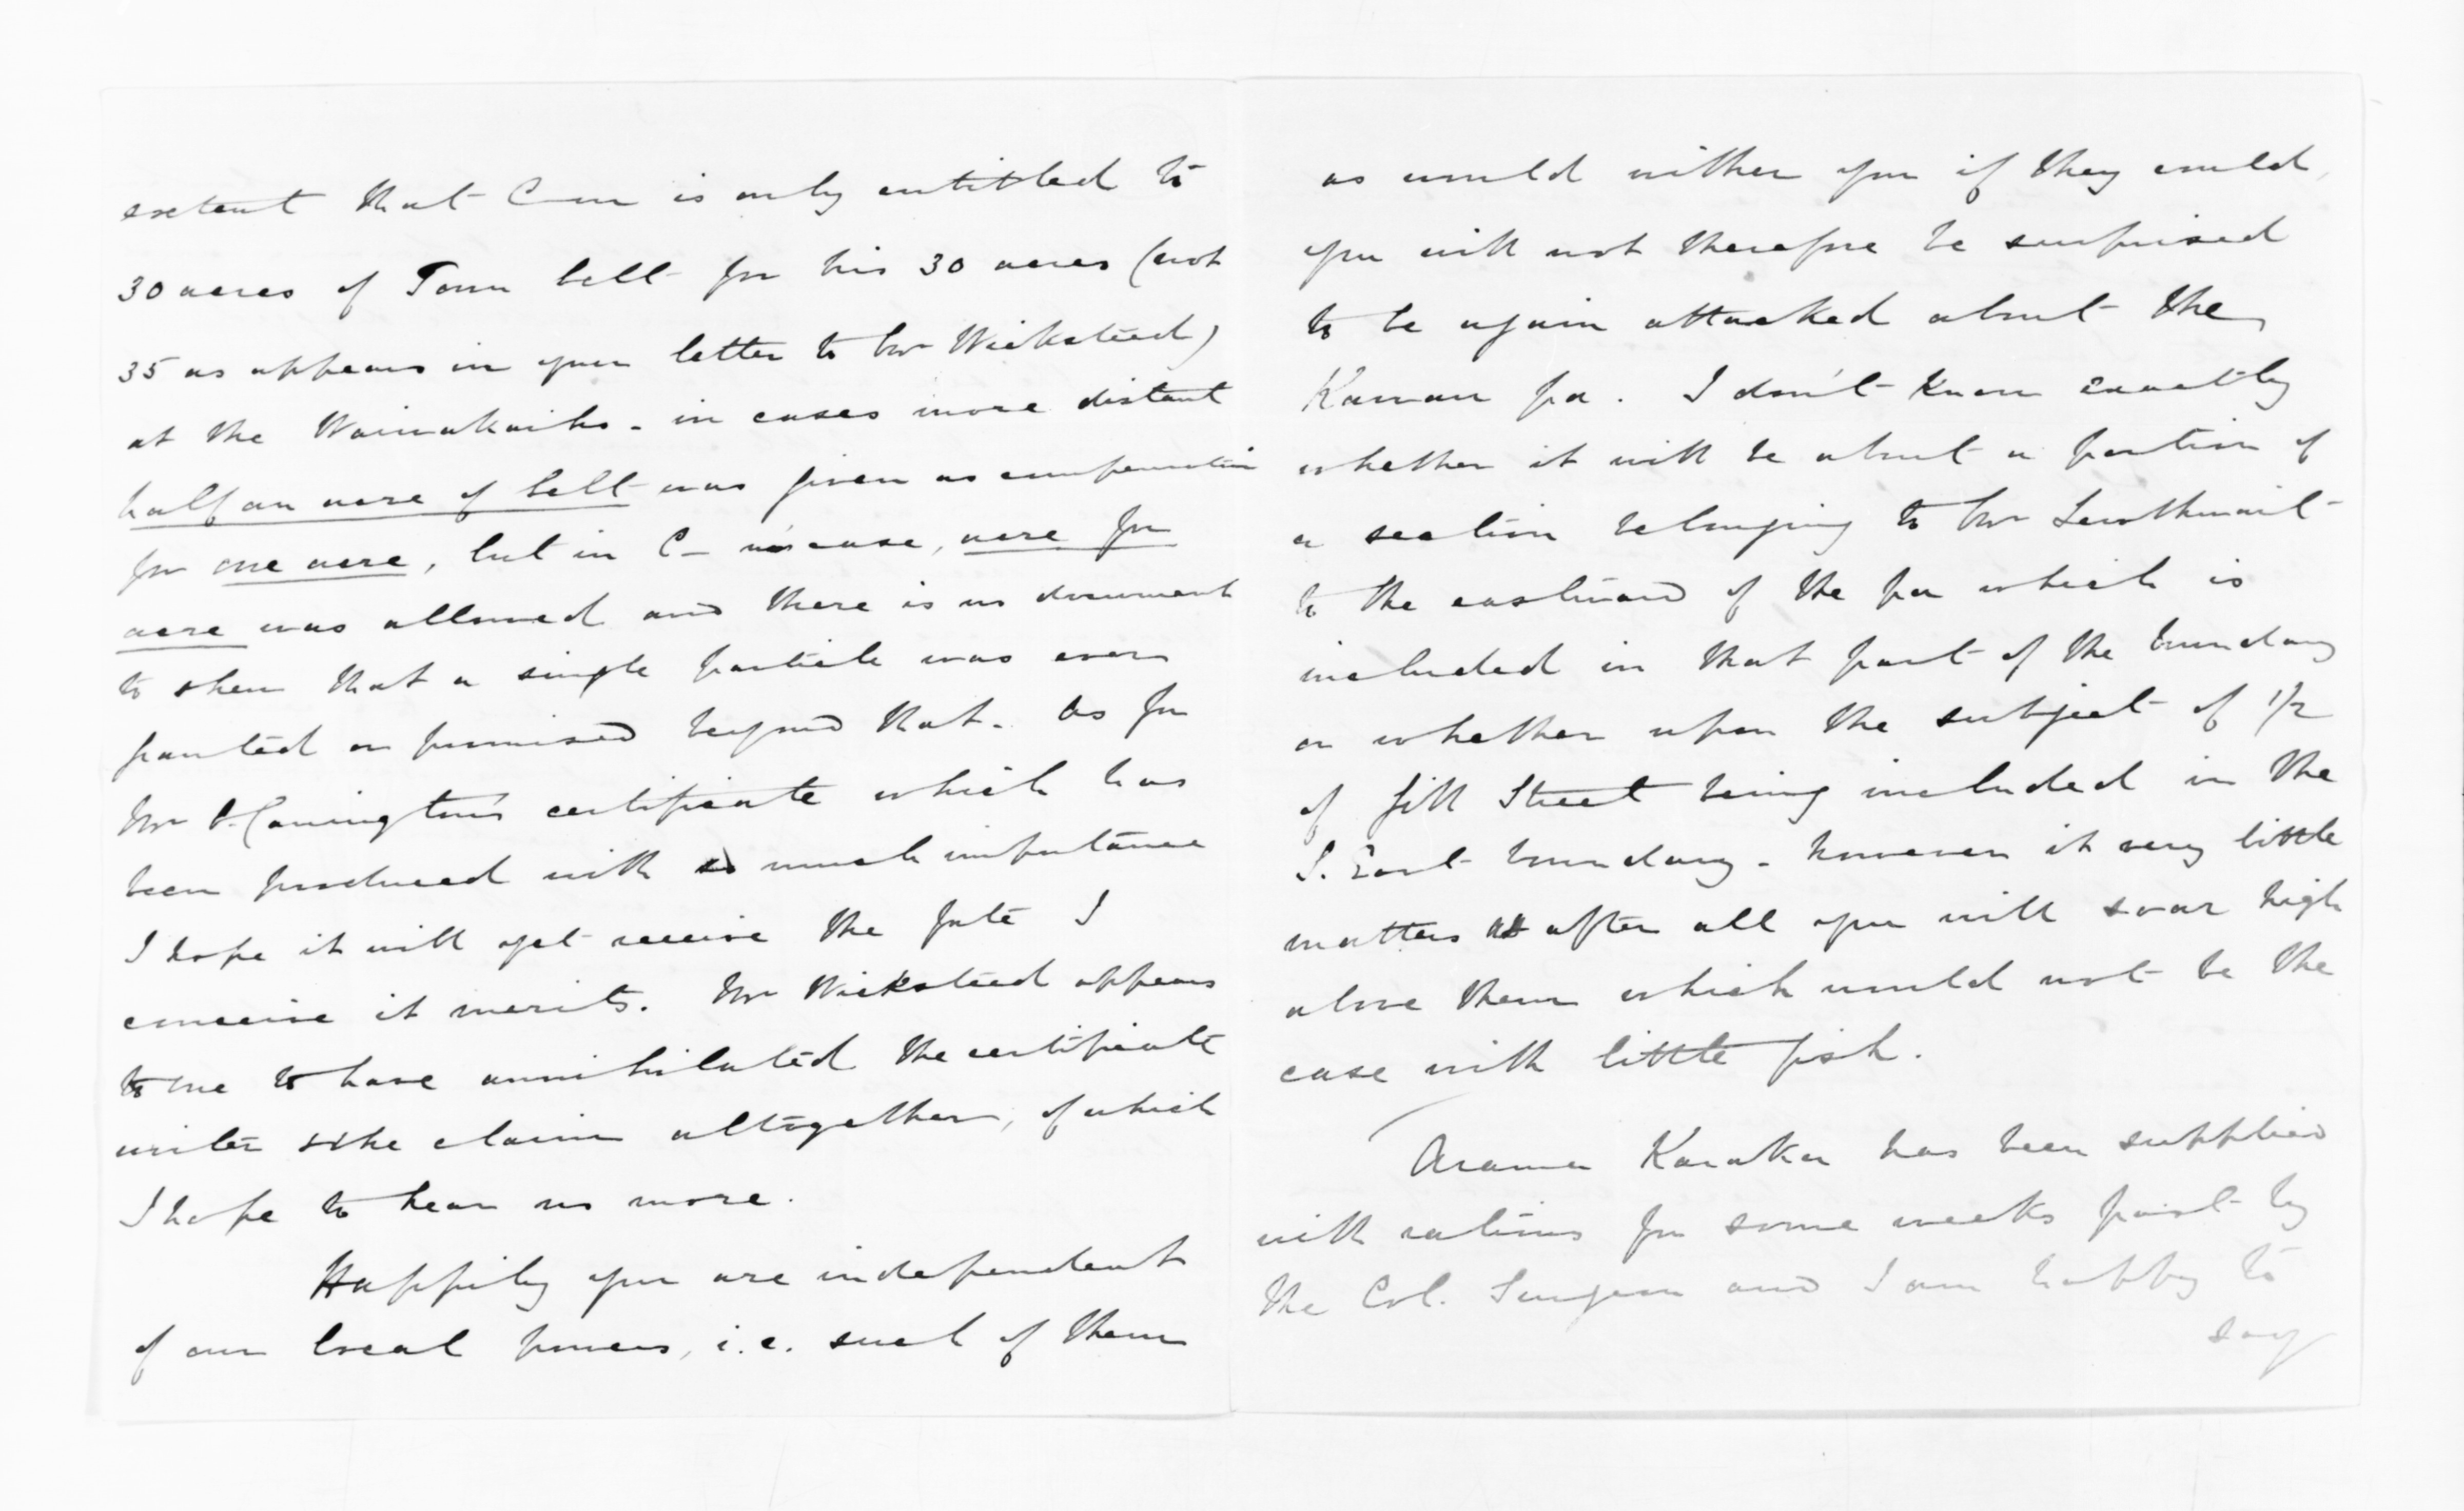 extent that C—m is only entitled to
30 acres of Town belt for his 30 acres (not
35 as appears in your letter to Mr Wicksteed)
at the Waiwakaiho - in cases more distant
half an acre of belt was given as compensation
for one acre, but in C—m's case, acre for
acre was allowed and there is no document
to shew that a single particle was ever
granted or promised beyond that. As for
Mr O. Carrington's certificate which has
been produced with so much importance
I hope it will yet receive the fate I
conceive it merits. Mr Wicksteed appears
to me to have annihilated the certificate
writer & the claim altogether, of which
I hope to hear no more.
Happily you are independent
of our local powers, i.e. such of them
as would wither you if they could,
you will not therefore be surprised
to be again attacked about the
Kawau pa. I don't know exactly
whether it will be about a portion of
a section belonging to Mr
to the eastward of the pa which is
included in that part of the boundary
or whether upon the subject of 1/2
of Gill Street being included in the
S. East boundary - however it very little
matters as after all you will soar high
above them which would not be the
case with little fish.
Arama Karaka has been supplied
with rations for some weeks past by
the Col. Surgeon and I am happy to
say